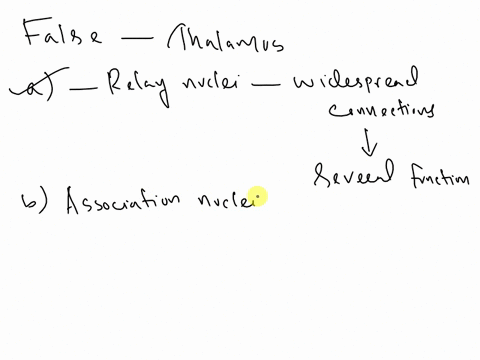 False — Thalamus
a) — Relay nuclei — widespread
connections
↓
Several function
b) Association nuclei